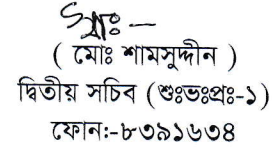 স্বাঃ—
( মোঃ শামসুদ্দীন )
দ্বিতীয় সচিব (শুঃভঃপ্রঃ-১)
ফোন:-৮৩৯১৬৩৪